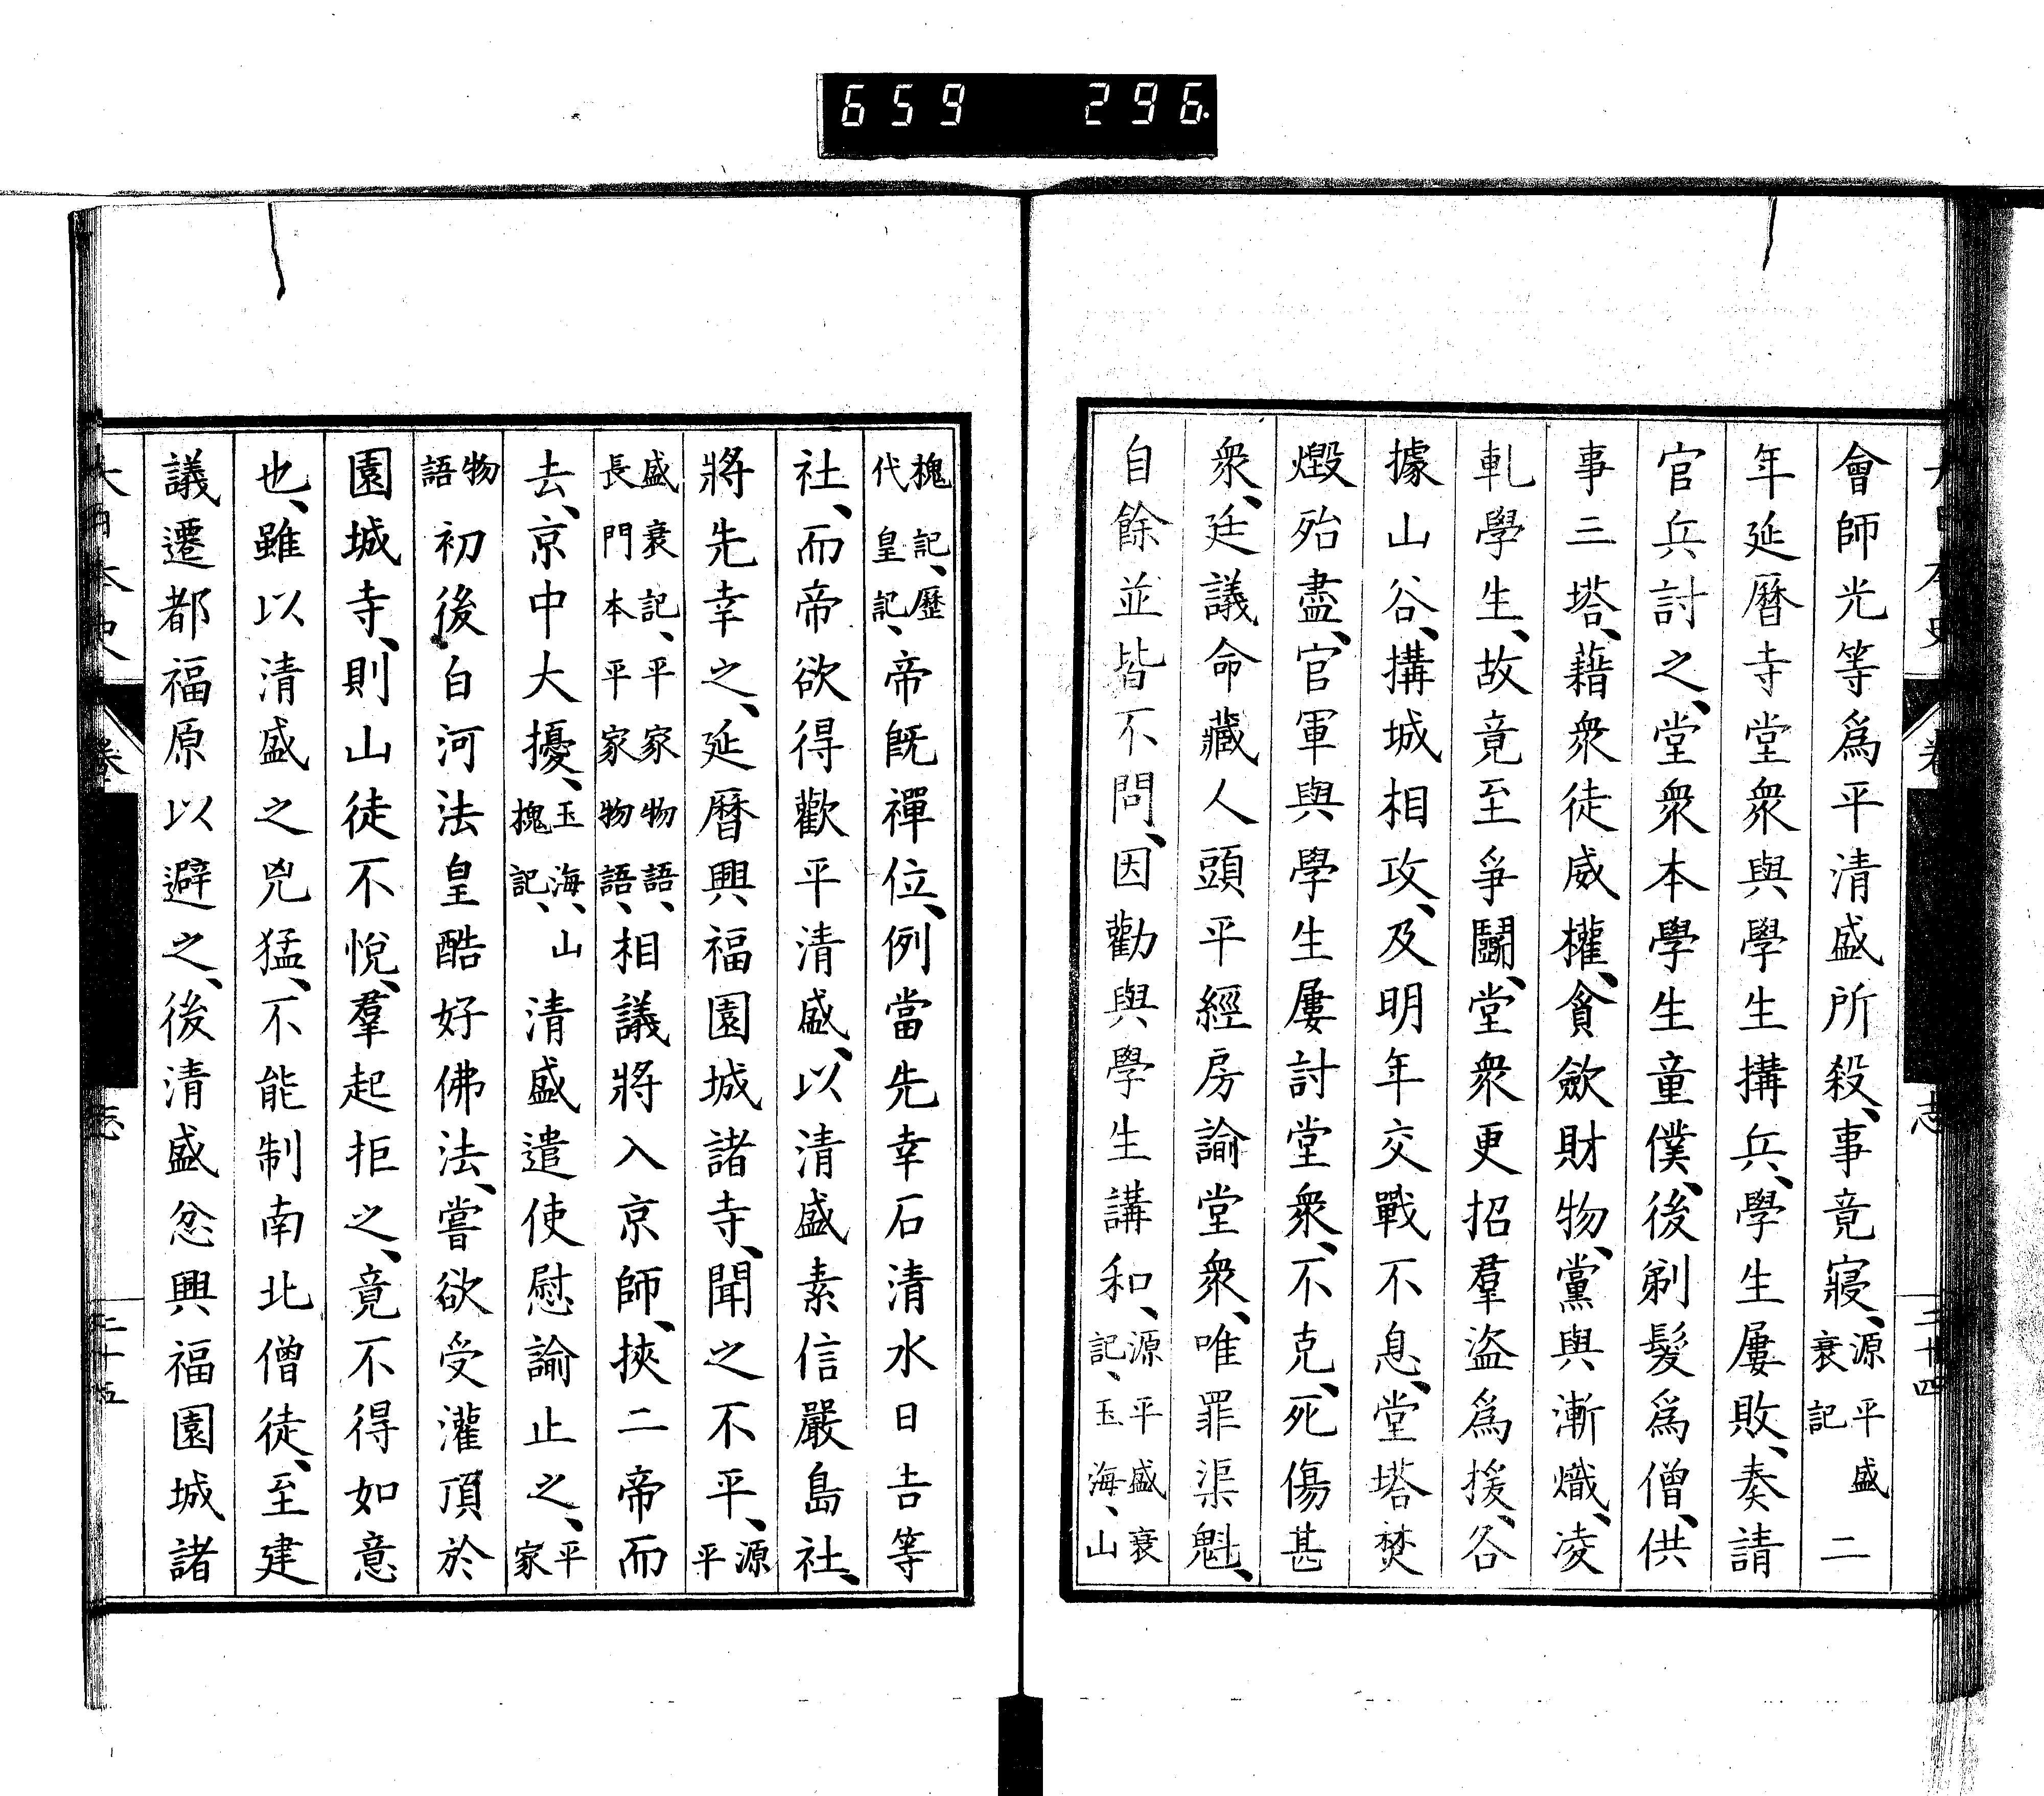 659 296.
會師光等爲平淸盛所殺、事竟寢、源平盛衰記二
年延曆寺堂衆與學生搆兵、學生屢敗、奏請
官兵討之、堂衆本學生童僕、後剃髮爲僧、供
事三塔、藉衆徒威權、貪斂財物、黨與漸熾、凌
軋學生、故竟至爭鬭、堂衆更招羣盜爲援、各
據山谷、搆城相攻、及明年交戰不息、堂塔焚
燬殆盡、官軍與學生屢討堂衆、不克、死傷甚
衆、廷議命藏人頭平經房諭堂衆、唯罪渠魁、
自餘並皆不問、因勸與學生講和、源平盛衰記、玉海、山
槐記、歷代皇記、帝既禪位、例當先幸石清水日吉等
社、而帝欲得歡平清盛、以清盛素信嚴島社、
將先幸之、延曆興福園城諸寺、聞之不平、源平
盛衰記、平家物語、長門本平家物語、相議將入京師、挾二帝而
去、京中大擾、玉海、山槐記、清盛遣使慰諭止之、平家
物語初後白河法皇酷好佛法、嘗欲受灌頂於
園城寺、則山徒不悅、羣起拒之、竟不得如意
也、雖以清盛之兇猛、不能制南北僧徒、至建
議遷都福原以避之、後清盛忿興福園城諸